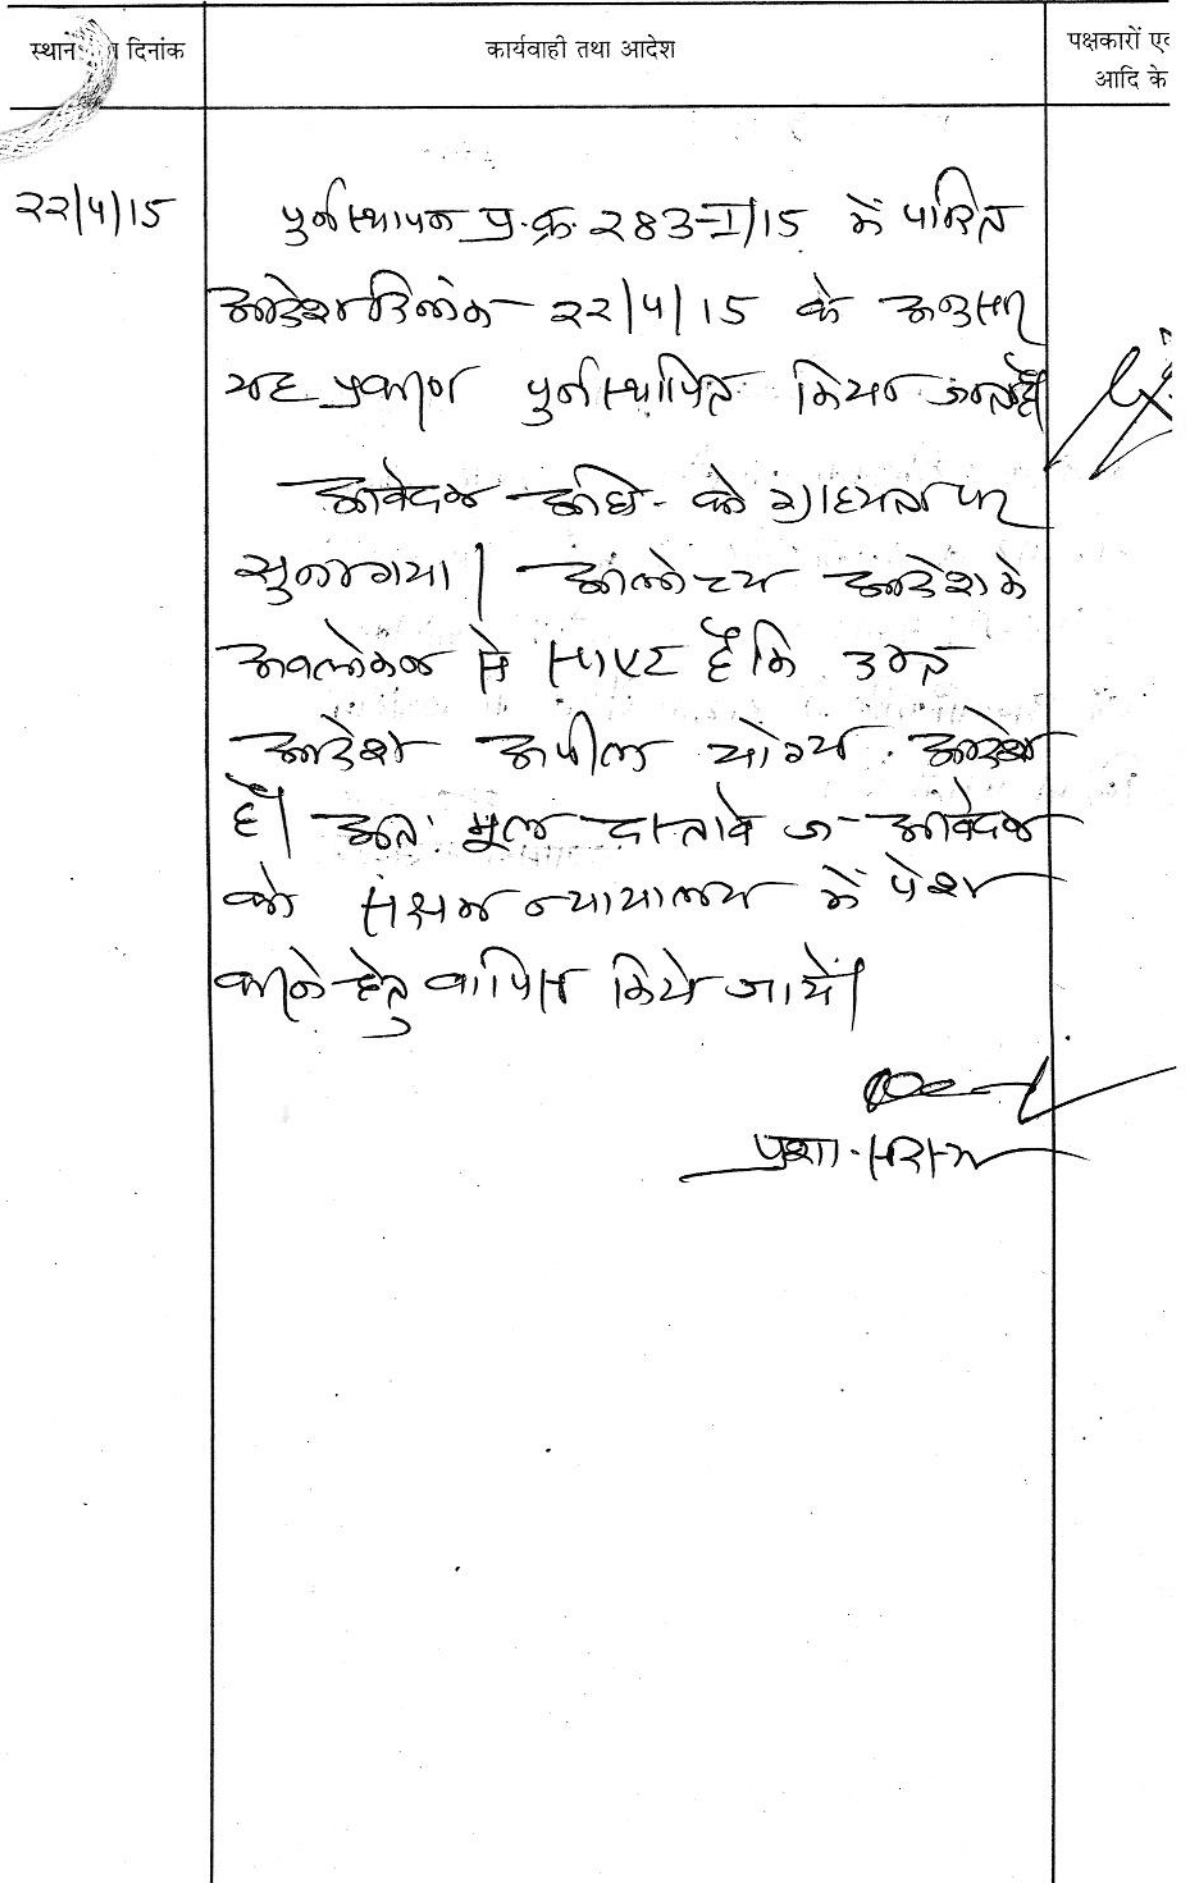 स्थान दिनांक
कार्यवाही तथा आदेश
पक्षकारों एव
आदि के
२२/५/15
पुर्नस्थापन प्र.क्र. २83-I/15 में पारित
आदेश दिनांक २२/५/15 के अनुसार
यह प्रकरण पुर्नस्थापित किया जाता है।
आवेदक अधि. को ग्राहयता पर
सुना गया। आलोच्य आदेश के
अवलोकन से स्पष्ट है कि उक्त
आदेश अपील योग्य आदेश
है। अत: मूल दस्तावेज आवेदक
को सक्षम न्यायालय में पेश
करने हेतु वापिस किये जायें।
प्रशा. सदस्य